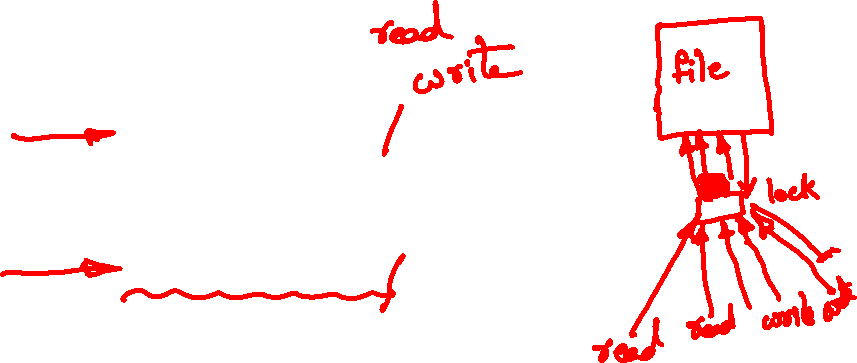 read
write
file
lock
read read write